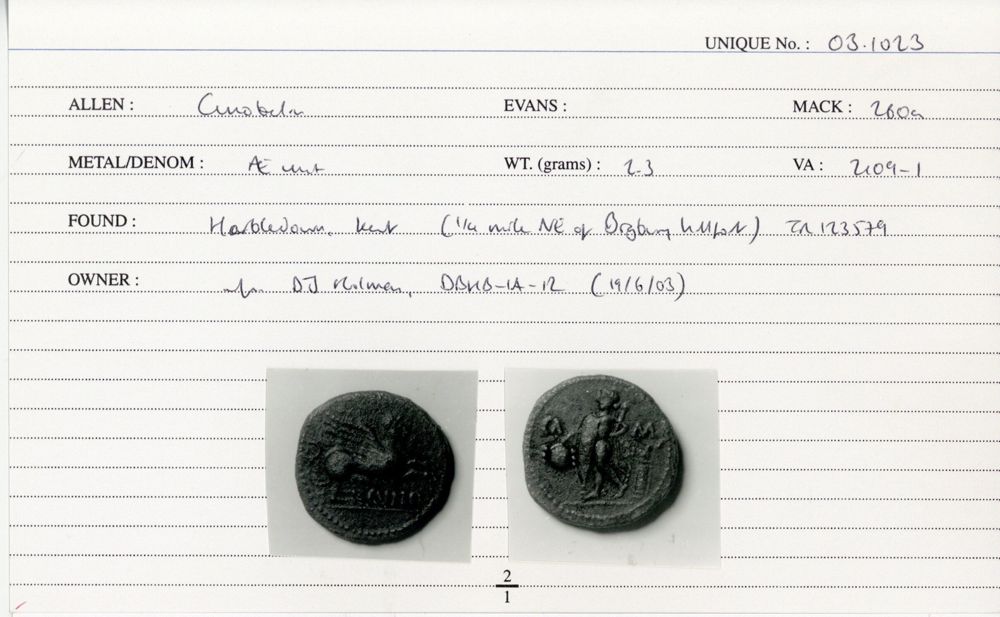 UNIQUE No. : 03.1023
ALLEN : Cunobelin EVANS : MACK : 260a
METAL/DENOM : Æ unit WT. (grams) : 2.3 VA : 2109-1
FOUND : Harbledown, Kent (1/4 mile NE of Bigbury hillfort) TR 123579
OWNER : DJ Holman, DBHB-IA-12 (19/6/03)
CVNO
2
1